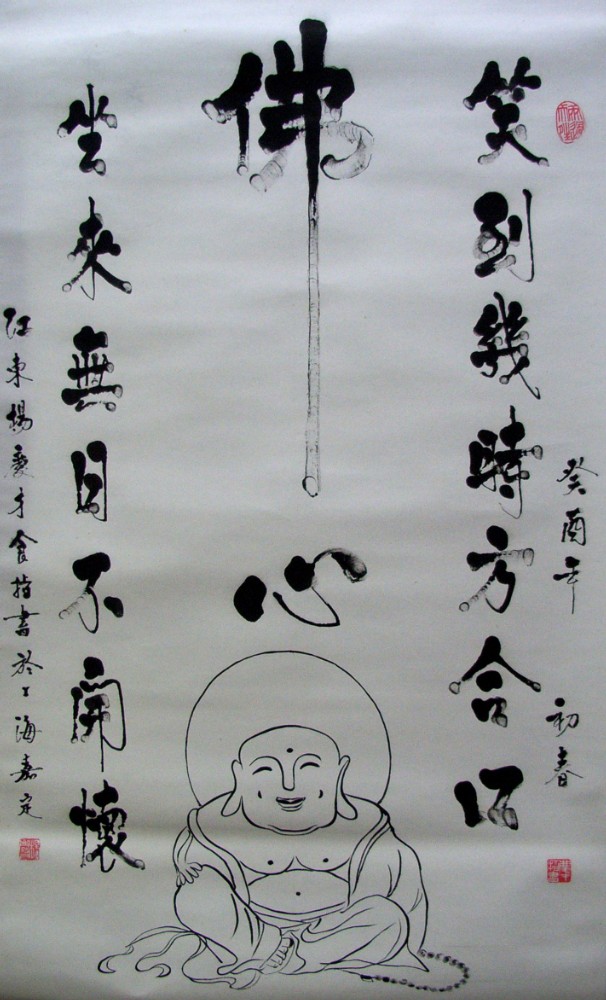 癸酉年初春
笑到幾時方合口
佛心
坐來無日不開懷
江東楊慶才食指書於上海嘉定